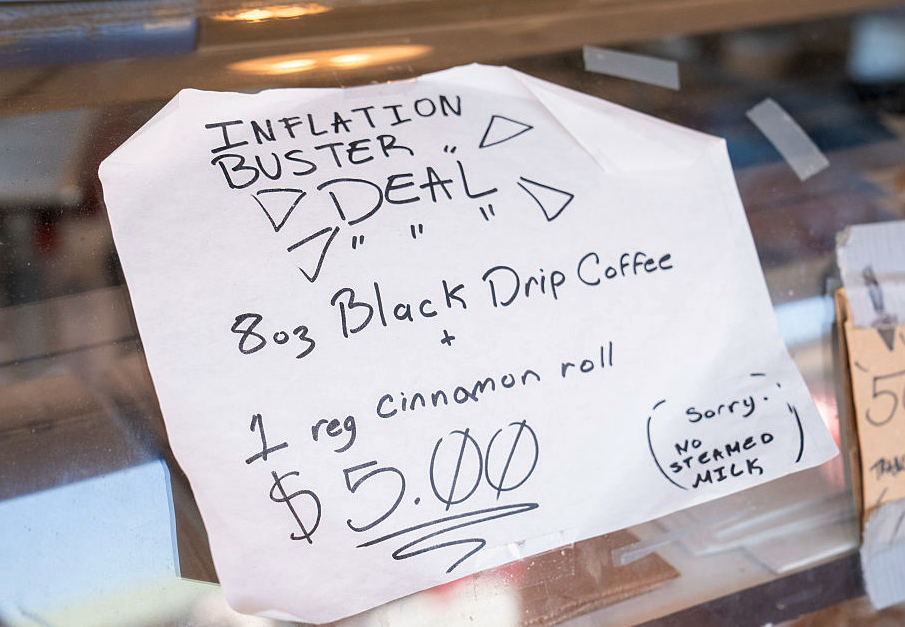 INFLATION
BUSTER
DEAL
8oz Black Drip Coffee
+
1 reg cinnamon roll
$5.00
Sorry.
NO
STEAMED
MILK